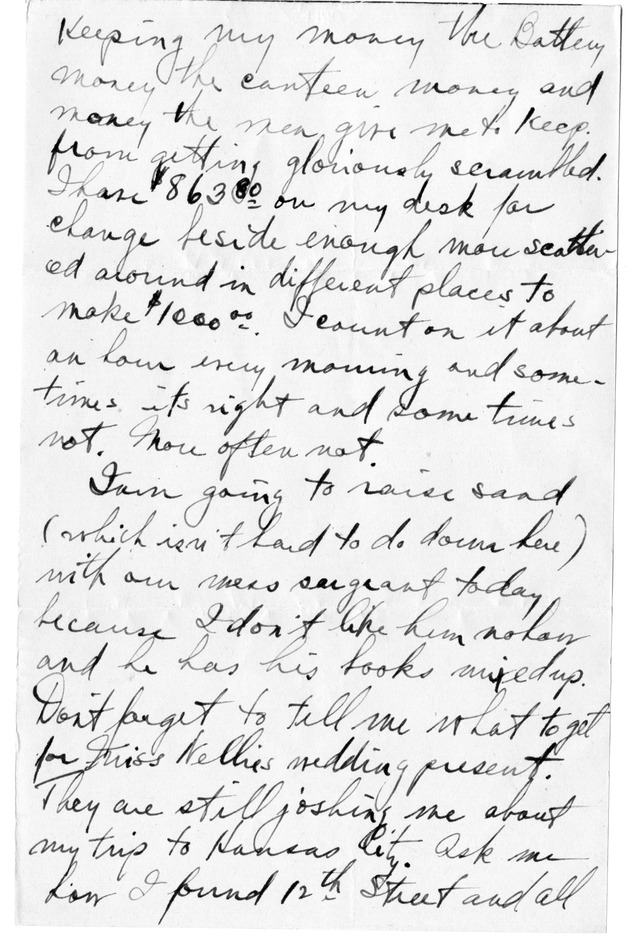 Keeping my money the Battery
money the canteen money and
money the men give me to keep.
from getting gloriously scrambled.
I have $863 80 on my desk for
change beside enough more scatter-
ed around in different places to
make $1000 00. I count on it about
an hour every morning and some-
times its right and some times
not. More often not.
I am going to raise sand
(which isn't hard to do down here)
with our mess sargeant today
because I don't like him nohow
and he has his books mixed up.
Don't forget to tell me what to get
for Miss Nellies wedding present.
They are still joshing me about
my trip to Kansas City. Ask me
how I found 12th Street and all